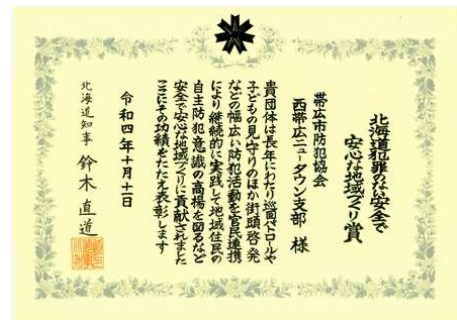 北海道犯罪のない安全で
安心な地域づくり賞
帯広市防犯協会
西帯広ニュータウン支部 様
貴団体は長年にわたり巡回パトロールや
子どもの見守りのほか街頭啓発
などの幅広い防犯活動を官民連携
により継続的に実践して地域住民の
自主防犯意識の高揚を図るなど
安全で安心な地域づくりに貢献されました
ここにその功績をたたえ表彰します
令和四年十月十一日
北海道知事 鈴木直道